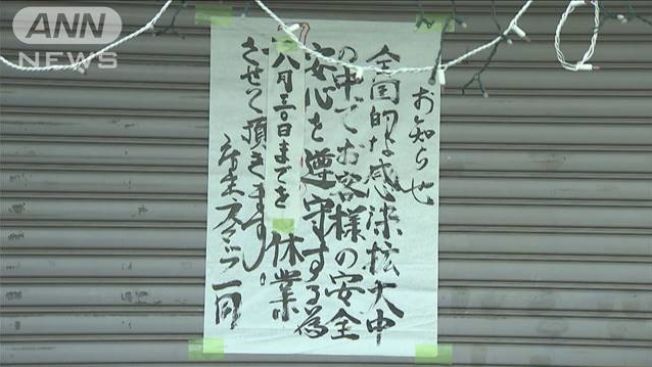 ANN
NEWS
お知らせ
全国的な感染拡大中
の中でお客様の安全
安心を遵守する為
八月三〇日までを休業
させて頂きます。
スタッフ一同